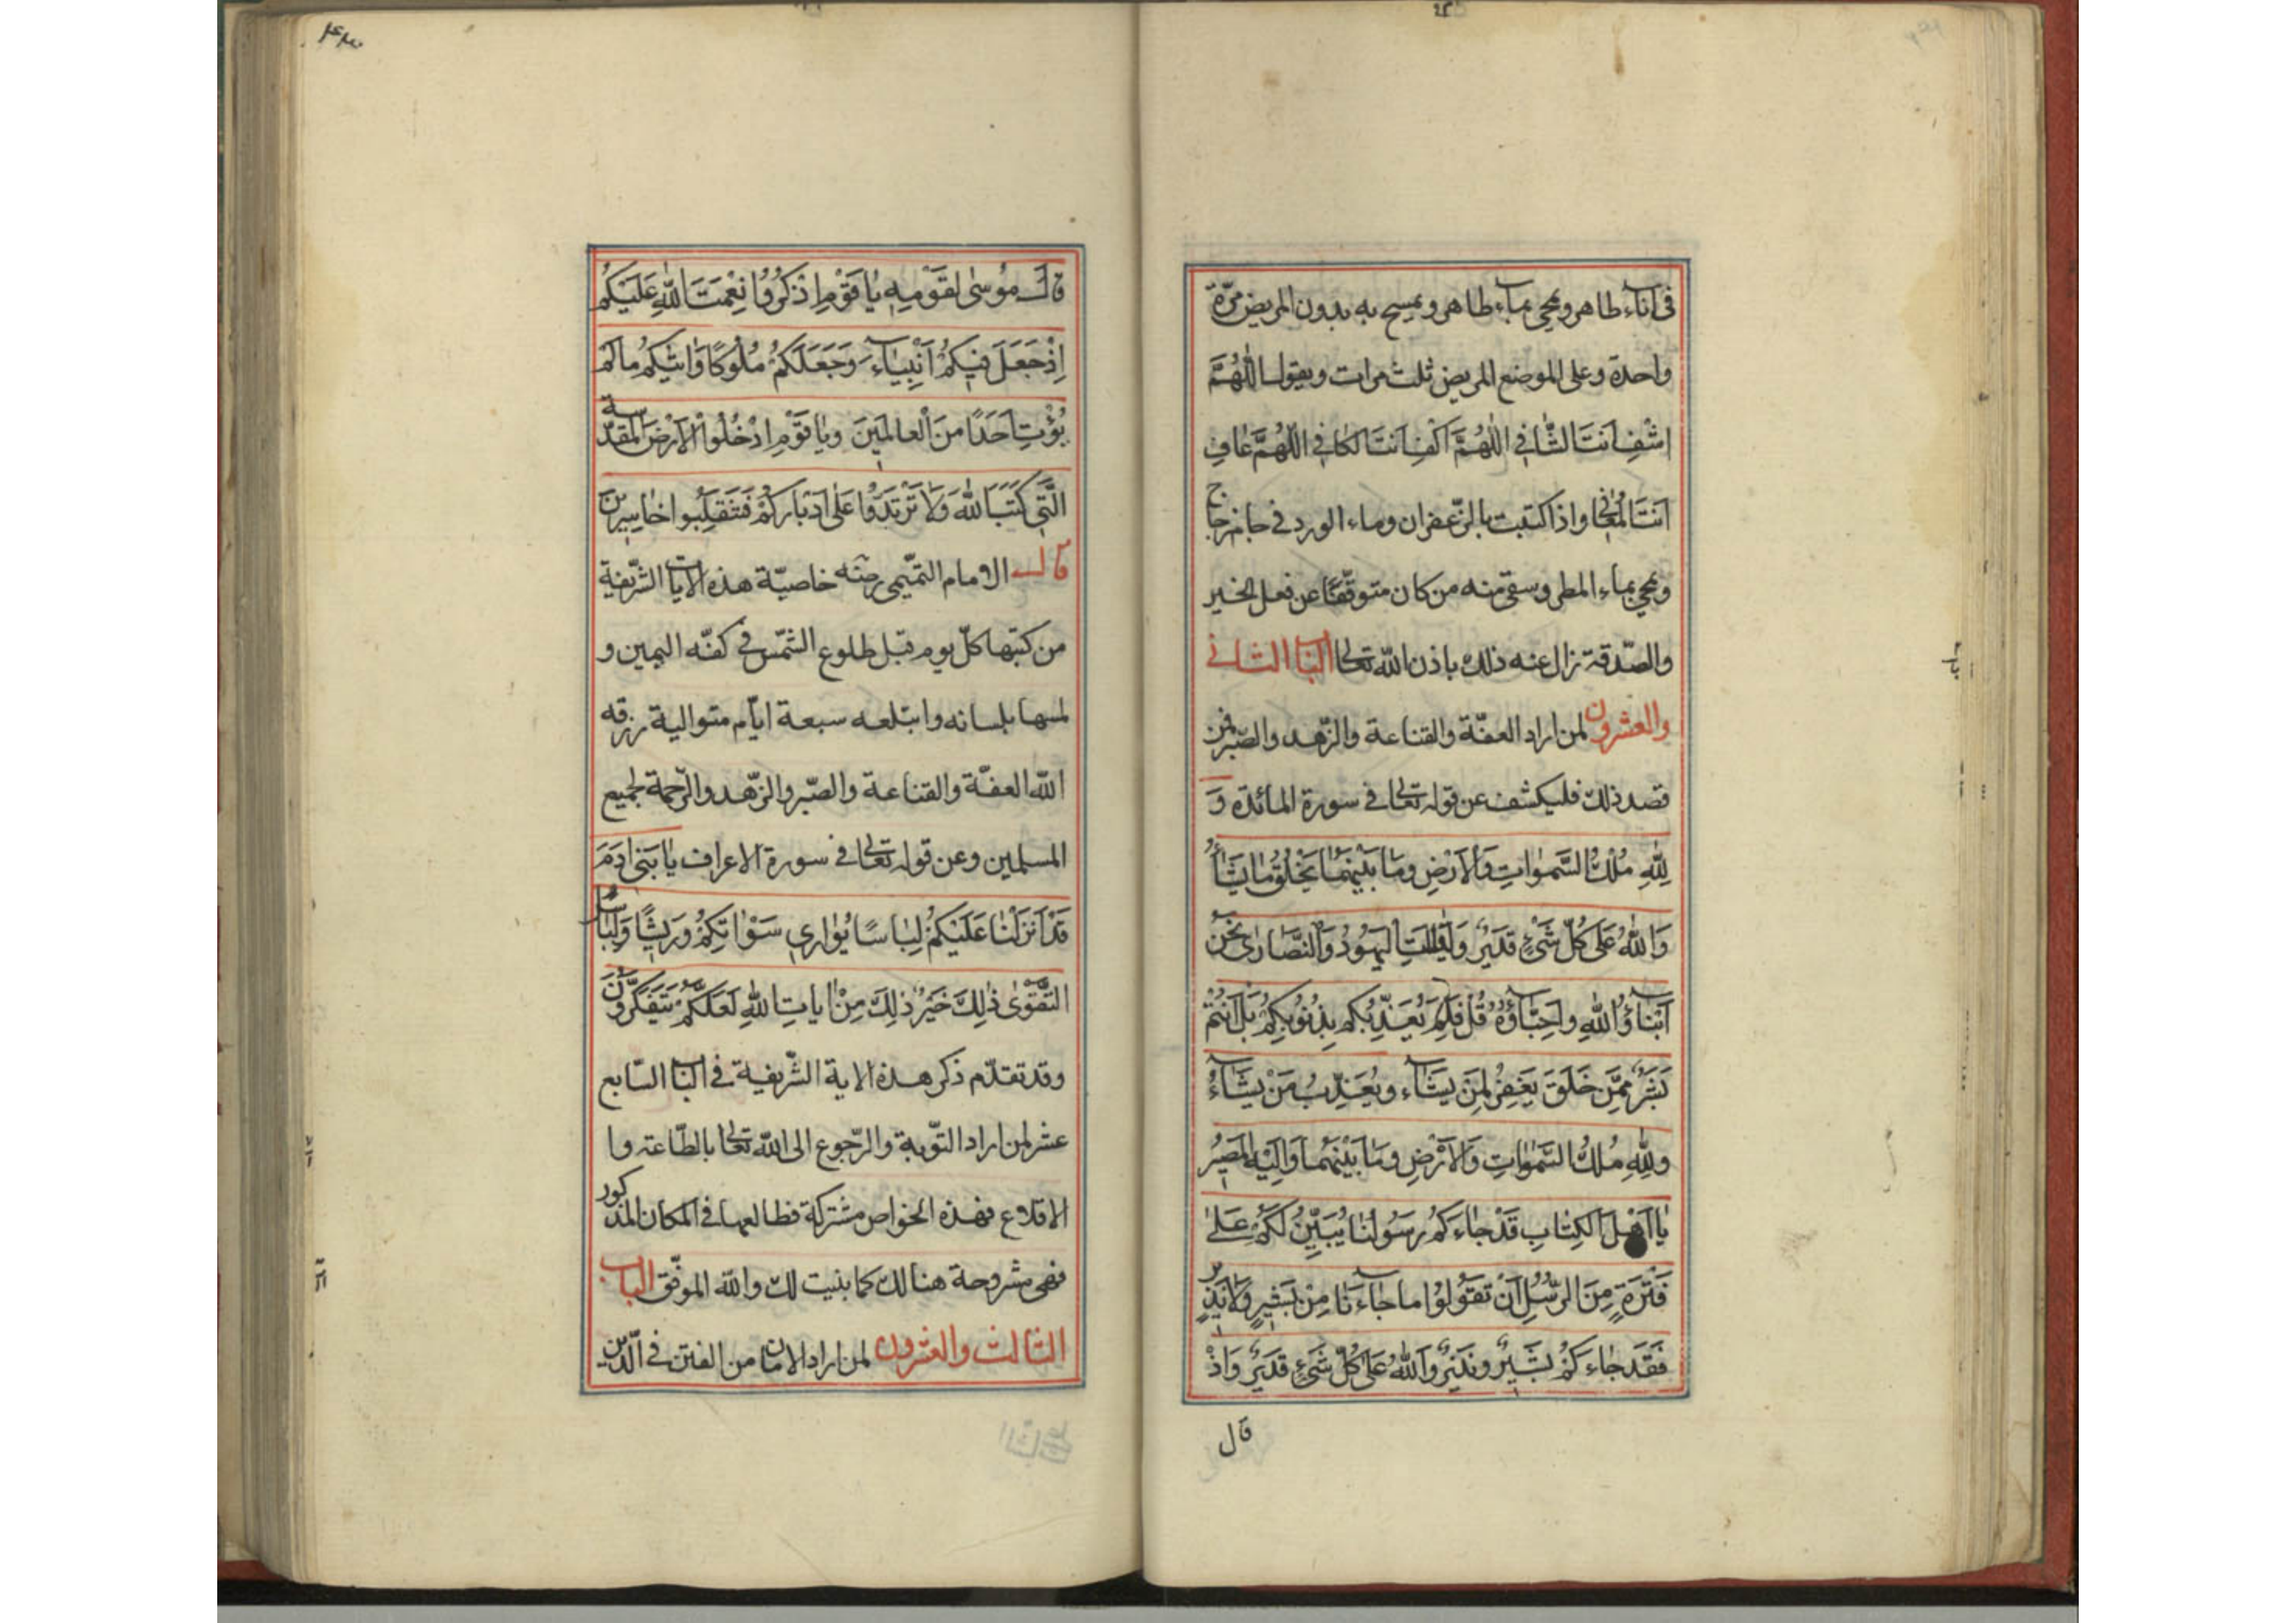 فى اناء طاهر ويمحى بماء طاهر ويمسح به بدون المريض مرّة
واحدة وعلى الموضع المريض ثلث مرات ويقول اللّهُمَّ
اشْفِ اَنتَ الشّافِي اللّهُمَّ اكْفِ اَنتَ الكافِي اللّهُمَّ عافِ
اَنتَ المُعافِي واذا كتبت بالزّعفران وماء الورد فى جام زجاج
ويمحى بماء المطر وسقى منه من كان متوقّفًا عن فعل الخير
والصّدقة زال عنه ذلك باذن اللّه تعالى الباب الثانى
والعشرون لمن اراد العفّة والقناعة والزّهد والصّبر فمن
قصد ذلك فليكشف عن قوله تعالى فى سورة المائدة وَ
لِلّهِ مُلْكُ السَّمٰواتِ وَالاَرْضِ وَما بَيْنَهُما يَخْلُقُ مايَشاءُ
وَاللّهُ عَلى كُلِّ شَىْءٍ قَدِيرٌ وَقالَتِ اليَهُودُ وَالنَّصارى نَحْنُ
اَبْناؤُ اللّهِ واَحِبّاؤُهُ قُلْ فَلِمَ يُعَذِّبُكُم بِذُنُوبِكُمْ بَلْ اَنْتُمْ
بَشَرٌ مِمَّن خَلَقَ يَغْفِرُ لِمَن يَشاء وَيُعَذِّبُ مَنْ يَشاءُ
ولِلّهِ مُلْكُ السَّمٰواتِ وَالاَرْضِ وَما بَيْنَهُما وَاِلَيْهِ المَصِيرُ
يا اَهْلَ الكِتابِ قَدْ جاءَكُم رَسُولُنا يُبَيِّنُ لَكُمْ عَلى
فَتْرَةٍ مِنَ الرُّسُلِ اَنْ تَقُولُوا ما جاءَنا مِنْ بَشِيرٍ وَلا نَذِيرٍ
فَقَدْ جاءَكُمْ بَشِيرٌ ونَذِيرٌ وَاللّهُ عَلى كُلِّ شَىْءٍ قَدِيرٌ وَاِذْ
قال
٤٣٠
قالَ مُوسٰى لِقَوْمِهِ يا قَوْمِ اذْكُرُوا نِعْمَتَ اللّهِ عَلَيْكُمْ
اِذْ جَعَلَ فِيكُمْ اَنْبِياءَ وَجَعَلَكُمْ مُلُوكًا وَاٰتيكُمْ مالَمْ
يُؤْتِ اَحَدًا مِنَ الْعالَمِينَ ويا قَوْمِ ادْخُلُوا الاَرْضَ المُقَدَّسَةَ
الَّتِى كَتَبَ اللّهُ وَلا تَرْتَدُّوا عَلى اَدْبارِكُمْ فَتَنْقَلِبُوا خاسِرِينَ
قال الامام التّميمى رحمه خاصيّة هذه الايات الشّريفة
من كتبها كلّ يوم قبل طلوع الشّمس فى كفّه اليمين و
لمسها بلسانه وابتلعه سبعة ايّام متوالية رزقه
اللّه العفّة والقناعة والصّبر والزّهد والرّحمة لجميع
المسلمين وعن قوله تعالى فى سورة الاعراف يا بَنِى ادَمَ
قَدْ اَنْزَلْنا عَلَيْكُمْ لِباسًا يُوارِى سَوْاتِكُمْ وَرِيشًا وَلِباسُ
التَّقْوٰى ذٰلِكَ خَيْرٌ ذٰلِكَ مِنْ اٰياتِ اللّهِ لَعَلَّكُمْ تَتَفَكَّرُونَ
وقد تقدّم ذكر هذه الاية الشّريفة فى الباب السّابع
عشر لمن اراد التّوبة والرّجوع الى اللّه تعالى بالطّاعة وا
الاقلاع فهذه الخواص مشتركة فطالعها فى المكان المذكور
فهى مشروحة هنالك كما بنيت لك واللّه الموفّق الباب
الثالث والعشرون لمن اراد الامان من الفتن فى الدّين